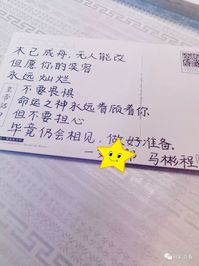 木已成舟,无人能改
但愿你的笑容
永远灿烂
不要畏惧
命运之神永远眷顾着你
但不要担心
毕竟仍会相见,做好准备。
马彬程